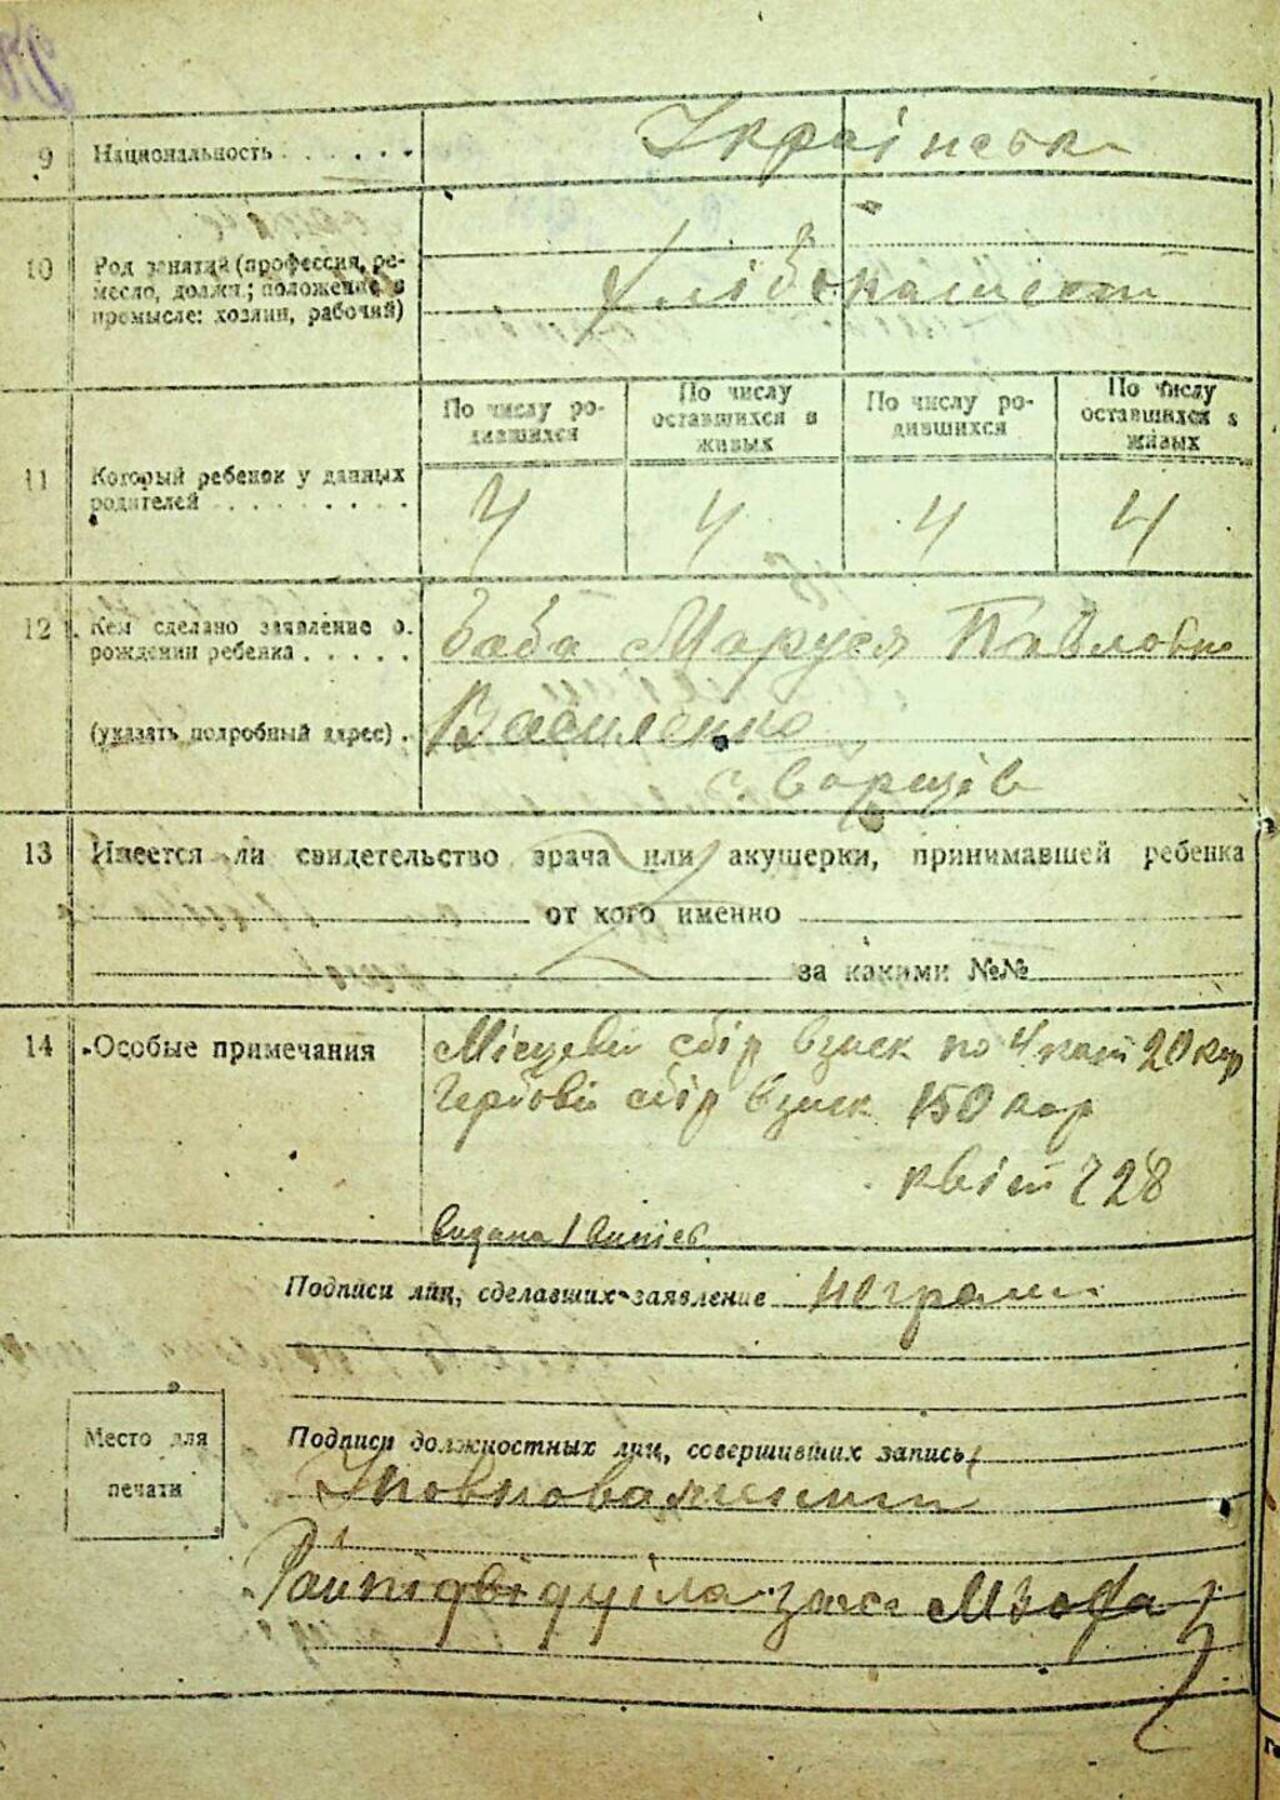 9 Национальность . . . . . .
Українська
10 Род занятий (профессия, ре-
месло, должн.; положение в
промысле: хозяин, рабочий)
Хлібопашество
По числу ро-
дившихся
По числу
оставшихся в
живых
По числу ро-
дившихся
По числу
оставшихся в
живых
11 Который ребенок у данных
родителей . . . . . . . .
4 4 4 4
12 Кем сделано заявление о
рождении ребенка . . . . .
баба Маруся Павловна
(указать подробный адрес) .
Василенко
с. Борщів
13 Имеется ли свидетельство врача или акушерки, принимавшей ребенка
от кого именно
за какими №№
14 Особые примечания
Місцевий сбір взиск по 4 кат 20 кор
Гербовий сбір взиск 150 кар
квіт 228
видана 1 випись
Подписи лиц, сделавших заявление неграм.
Место для
печати
Подписи должностных лиц, совершивших запись
Уповноважений
Райпідвідділа загс